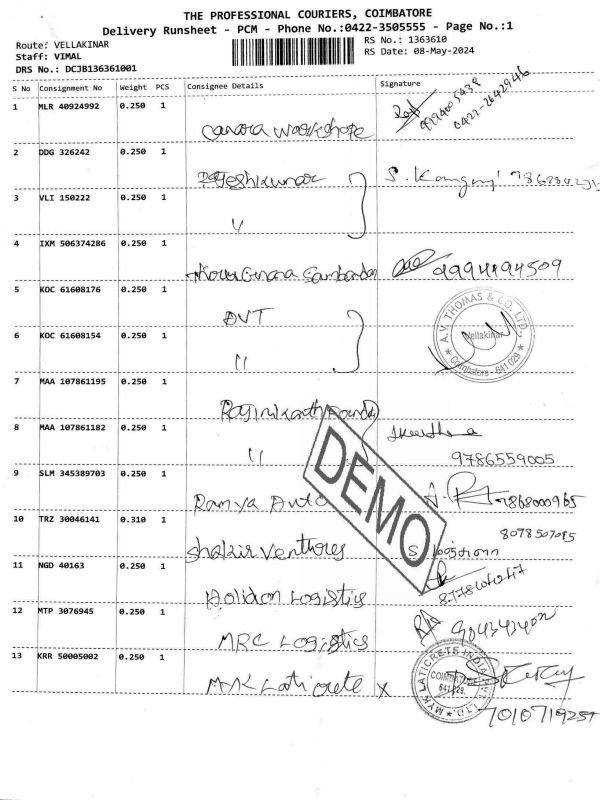 THE PROFESSIONAL COURIERS, COIMBATORE
Delivery Runsheet - PCM - Phone No.:0422-3505555 - Page No.:1
Route: VELLAKINAR
RS No.: 1363610
Staff: VIMAL
RS Date: 08-May-2024
DRS No.: DCJB136361001
S No Consignment No Weight PCS Consignee Details Signature
1 MLR 40924992 0.250 1
Canara workshope
2 DDG 326242 0.250 1
S.
3 VLI 150222 0.250 1
"
4 IXM 506374286 0.250 1
9994194509
5 KOC 61608176 0.250 1
AVT
A.V. THOMAS & CO. LTD.,
Vellakinar
Coimbatore - 641 029
6 KOC 61608154 0.250 1
"
7 MAA 107861195 0.250 1
8 MAA 107861182 0.250 1
"
9786559005
DEMO
9 SLM 345389703 0.250 1
Ramya Auto
9868000965
10 TRZ 30046141 0.310 1
Shakir Ventures
11 NGD 40163 0.250 1
Logistics
12 MTP 3076945 0.250 1
MRC Logistics
13 KRR 50005002 0.250 1
MYK Laticrete x
MYK LATICRETE INDIA PVT. LTD.
COIMBATORE
641 029.
7010719257